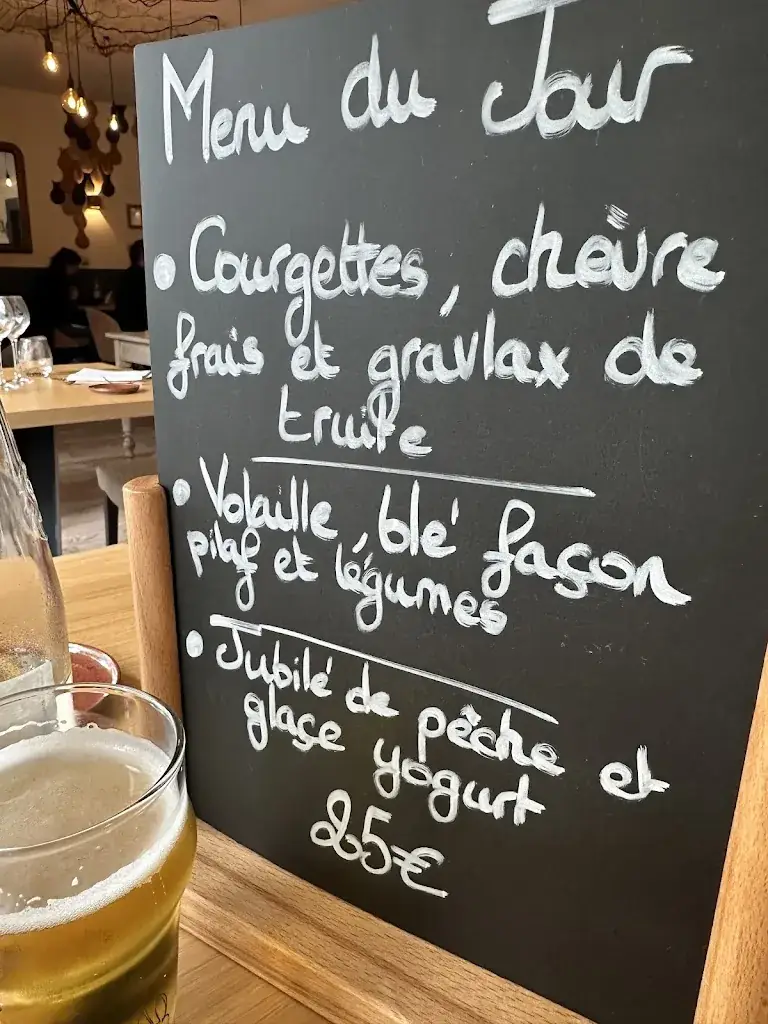 Menu du Jour
• Courgettes, chèvre
frais et gravlax de
truite
• Volaille, blé façon
pilaf et légumes
• Jubilé de pêche et
glaçe yogurt
25€